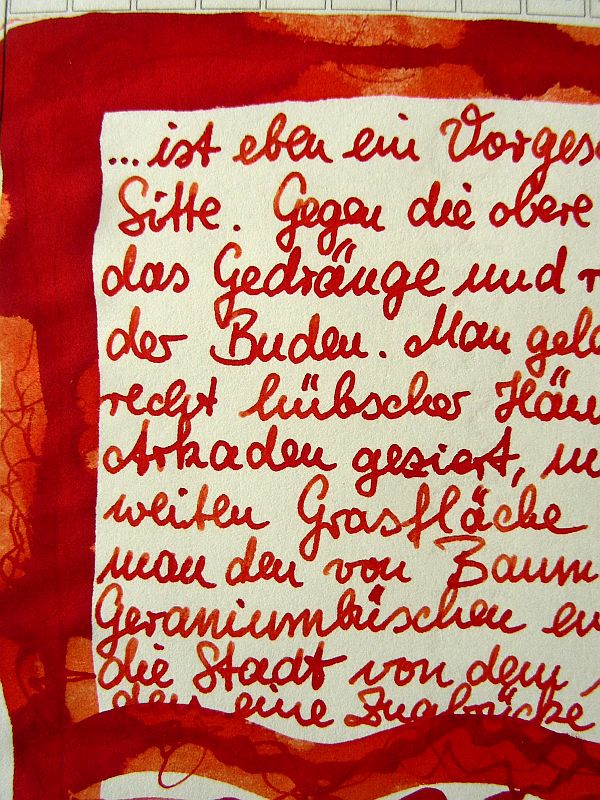 ...ist eben ein Vorges
Sitte. Gegen die obere
das Gedränge und r
der Buden. Man gela
recht hübscher Häu
Arkaden geziert, un
weiten Grasfläche
man den von Baum
Geraniumbüschen en
die Stadt von dem
den eine Zugbrücke